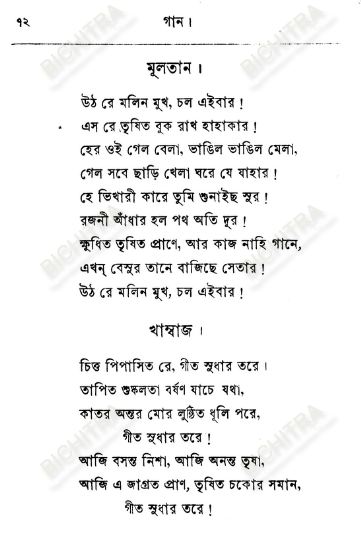 ৭২ গান।
মূলতান।
উঠ রে মলিন মুখ, চল এইবার!
এস রে তৃষিত বুক রাখ হাহাকার!
হের ওই গেল বেলা, ভাঙিল ভাঙিল মেলা,
গেল সবে ছাড়ি খেলা ঘরে যে যাহার!
হে ভিখারী কারে তুমি শুনাইছ সুর!
রজনী আঁধার হল পথ অতি দূর!
ক্ষুধিত তৃষিত প্রাণে, আর কাজ নাহি গানে,
এখন্ বেসুর তানে বাজিছে সেতার!
উঠ রে মলিন মুখ, চল এইবার!
খাম্বাজ।
চিত্ত পিপাসিত রে, গীত সুধার তরে।
তাপিত শুষ্কলতা বর্ষণ যাচে যথা,
কাতর অন্তর মোর লুণ্ঠিত ধূলি পরে,
গীত সুধার তরে!
আজি বসন্ত নিশা, আজি অনন্ত তৃষা,
আজি এ জাগ্রত প্রাণ, তৃষিত চকোর সমান,
গীত সুধার তরে!
BICHITRA